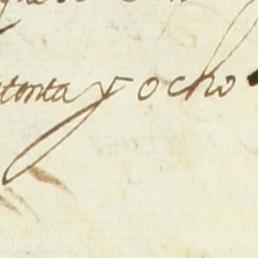 tenta y ocho